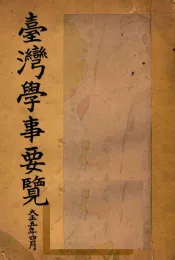 臺灣學事要覽
大正五年四月